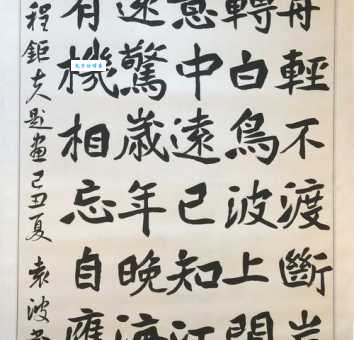 舟輕不渡斷
轉白鳥波上
意中遠已知江
逐驚歲年晚海
有機相忘自應
程鉅夫題畫己丑夏 袁波